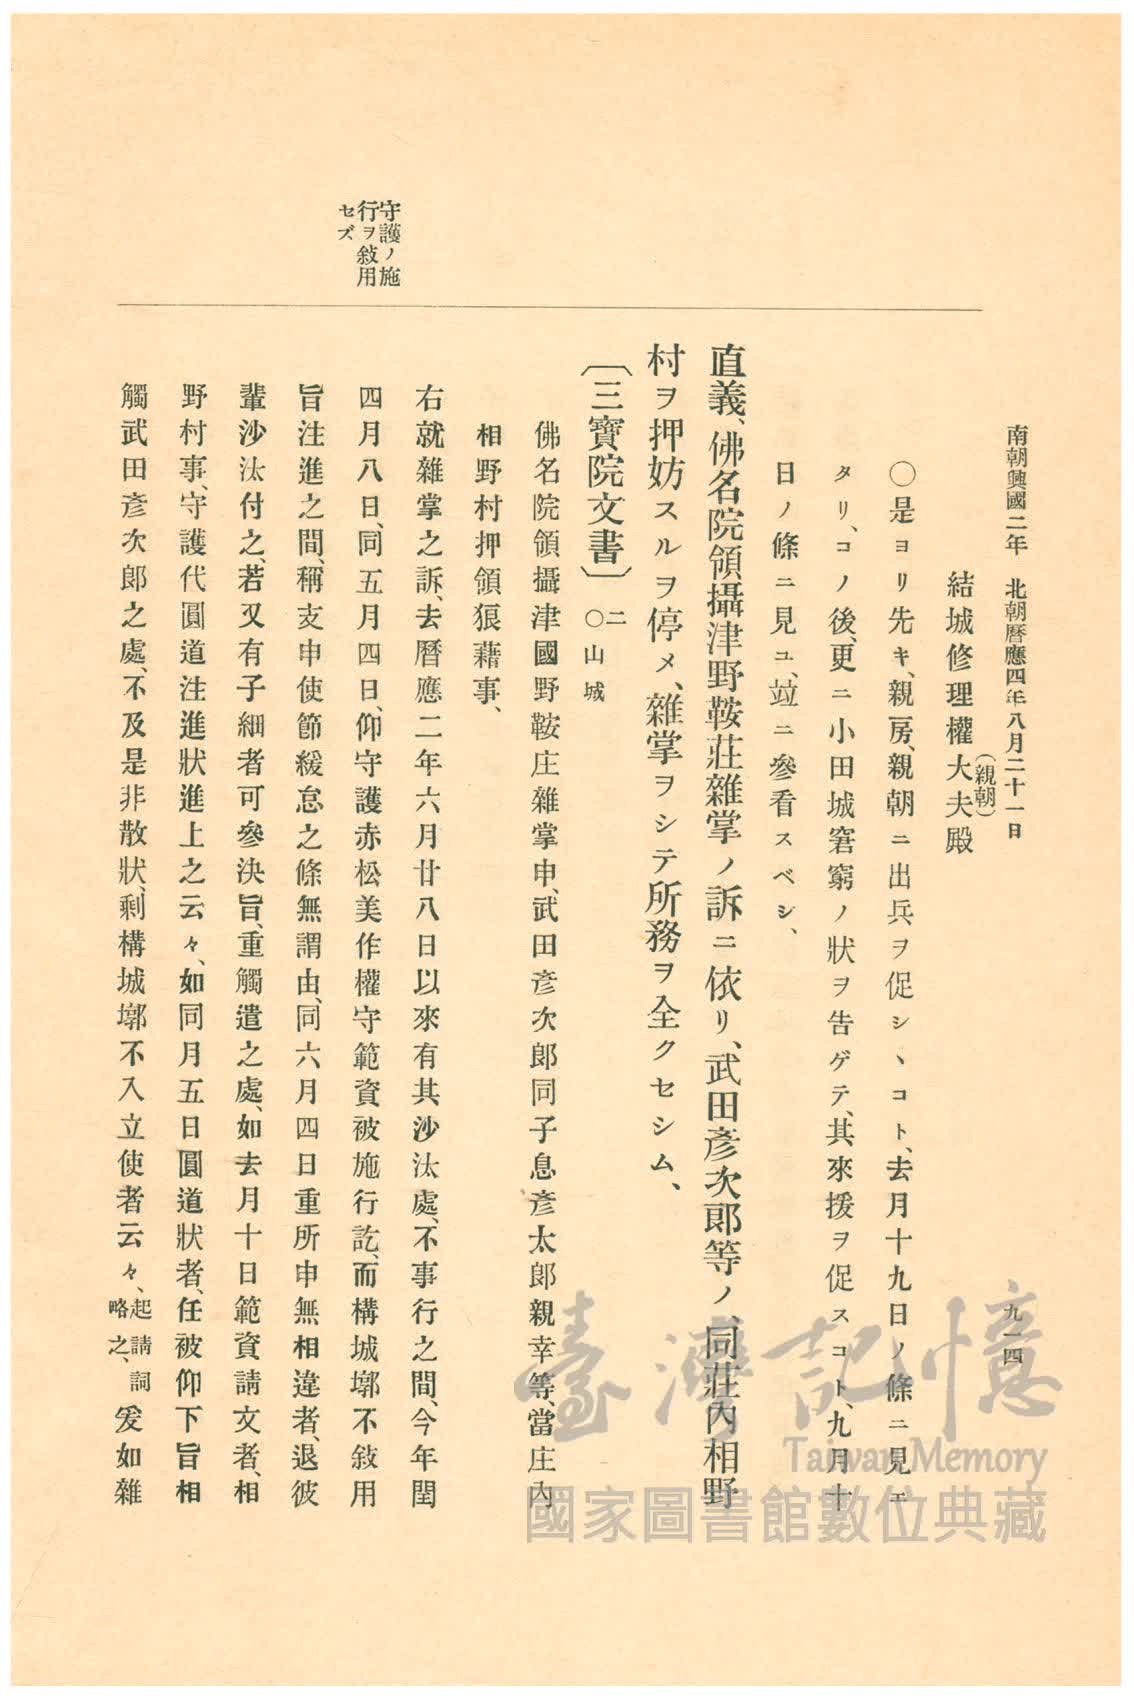 南朝興國二年 北朝曆應四年八月二十一日 九一四
結城修理權大夫殿
(親朝)
○是ヨリ先キ、親房、親朝ニ出兵ヲ促シヽコト、去月十九日ノ條ニ見エ
タリ、コノ後、更ニ小田城窘窮ノ狀ヲ告ゲテ、其來援ヲ促スコト、九月十
日ノ條ニ見ユ、竝ニ參看スベシ、
直義、佛名院領攝津野鞍莊雜掌ノ訴ニ依リ、武田彥次郞等ノ、同莊內相野
村ヲ押妨スルヲ停メ、雜掌ヲシテ所務ヲ全クセシム、
〔三寶院文書〕 二 ○山城
佛名院領攝津國野鞍庄雜掌申、武田彥次郞同子息彥太郞親幸等、當庄內
相野村押領狼藉事、
右就雜掌之訴、去曆應二年六月廿八日以來有其沙汰處、不事行之間、今年閏
守護ノ施
行ヲ敍用
セズ
四月八日、同五月四日、仰守護赤松美作權守範資被施行訖、而構城墎不敍用
旨注進之間、稱支申使節緩怠之條無謂由、同六月四日重所申無相違者、退彼
輩沙汰付之、若又有子細者可參決旨、重觸遣之處、如去月十日範資請文者、相
野村事、守護代圓道注進狀進上之云々、如同月五日圓道狀者、任被仰下旨相
觸武田彥次郞之處、不及是非散狀、剩構城墎不入立使者云々、起請詞略之、爰如雜
臺灣記憶
Taiwan Memory
國家圖書館數位典藏